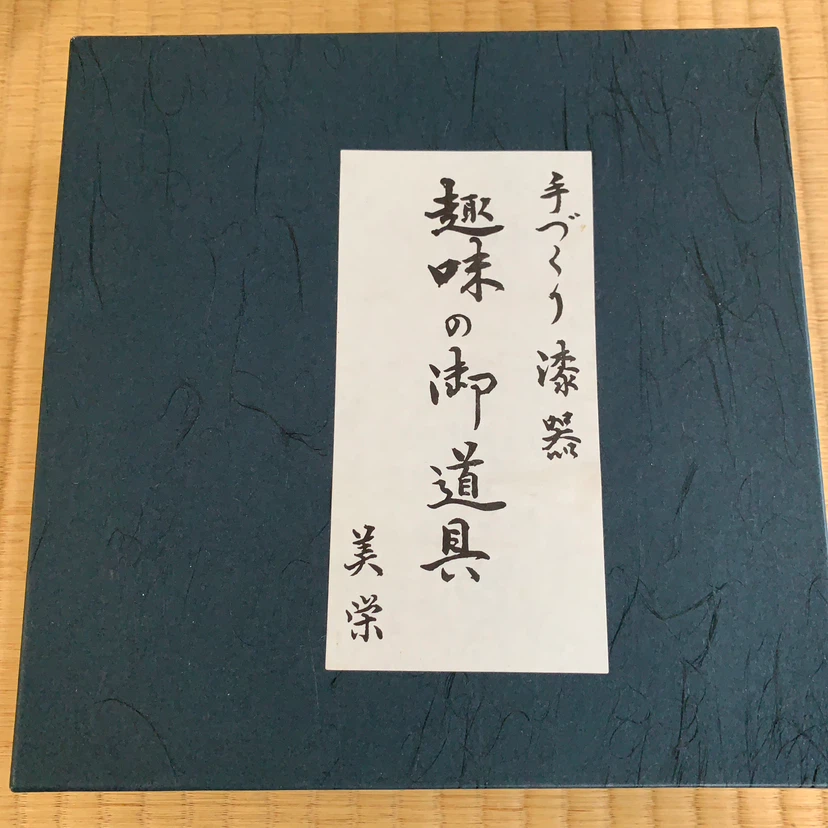 手づくり漆器
趣味の御道具
美栄